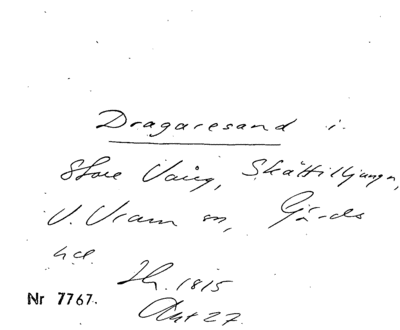 Dragaresand i
Store Vång, Skättiljunga,
V. Vram sn, Gärds
hd.
Sk. 1815
Akt 27.
Nr 7767.